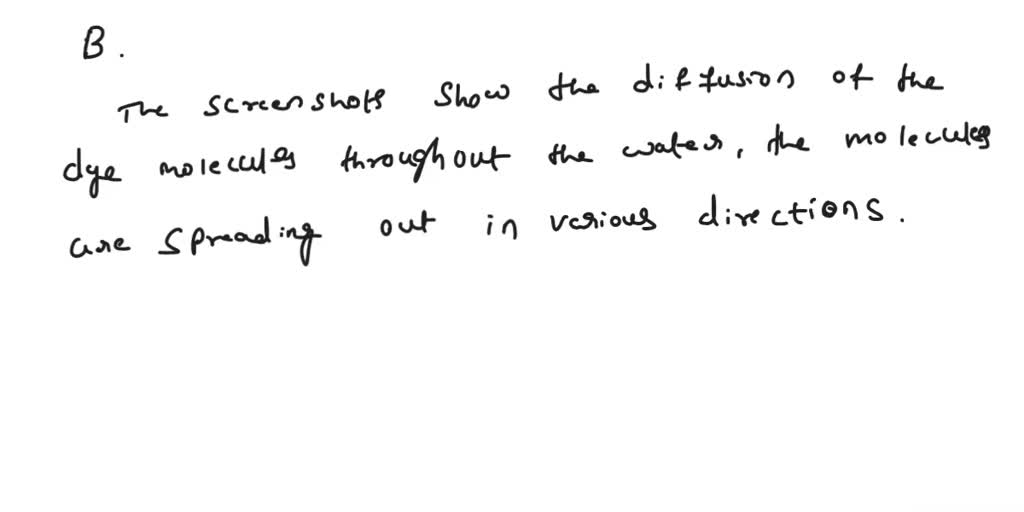 B.
The screenshots show the diffusion of the
dye molecules throughout the water, the molecules
are spreading out in various directions.